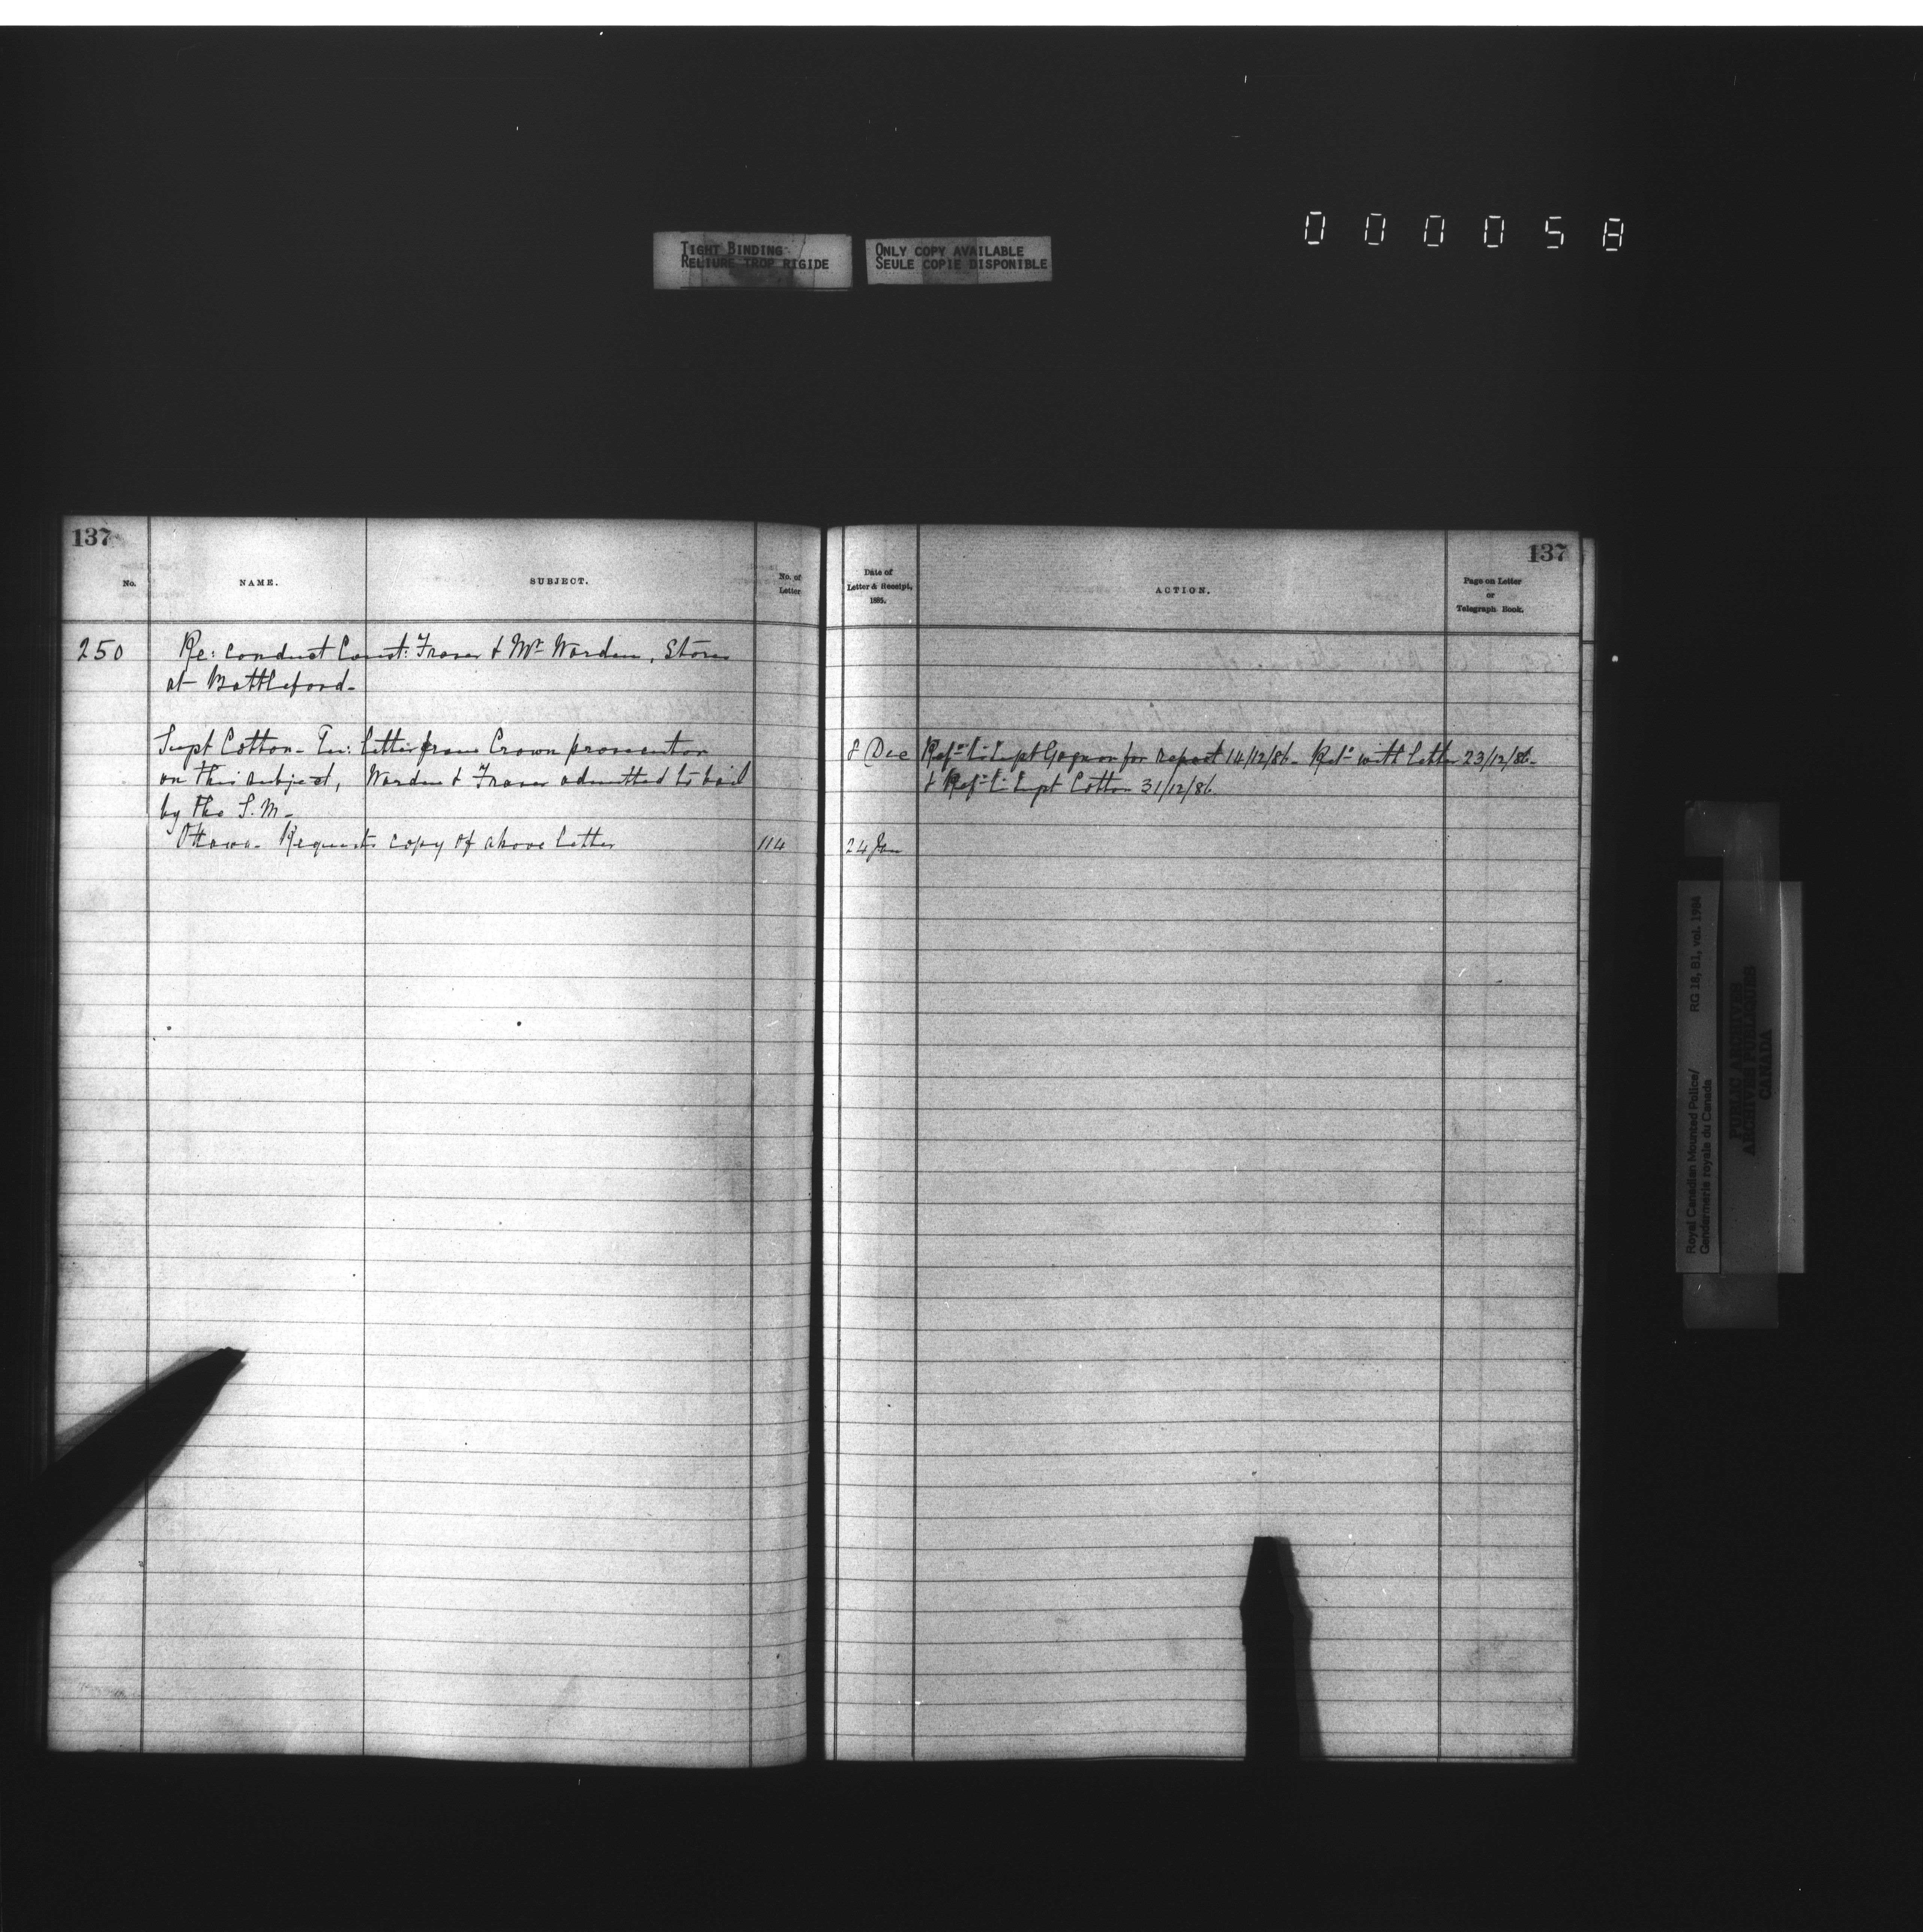 000058
TIGHT BINDING
RELIURE TROP RIGIDE
ONLY COPY AVAILABLE
SEULE COPIE DISPONIBLE
137
No.
NAME.
SUBJECT.
No. of
Letter
250
Re: conduct Const: Fraser & Mr Warden, Stores
at Battleford-
Supt Cotton- En: letter from Crown prosecutor
on this subject, Warden & Fraser admitted to bail
by the S.M-
Ottawa- Requests copy of above letter
114
137
Date of
Letter & Receipt,
1885.
ACTION.
Page on Letter
or
Telegraph Book.
8 Dec
Refd to Supt Gagnon for report 14/12/86- Retd with letter 23/12/86-
& Refd to Supt Cotton 31/12/86.
24 Jan
Royal Canadian Mounted Police/ RG 18, B1, vol. 1984
Gendarmerie royale du Canada
PUBLIC ARCHIVES
ARCHIVES PUBLIQUES
CANADA